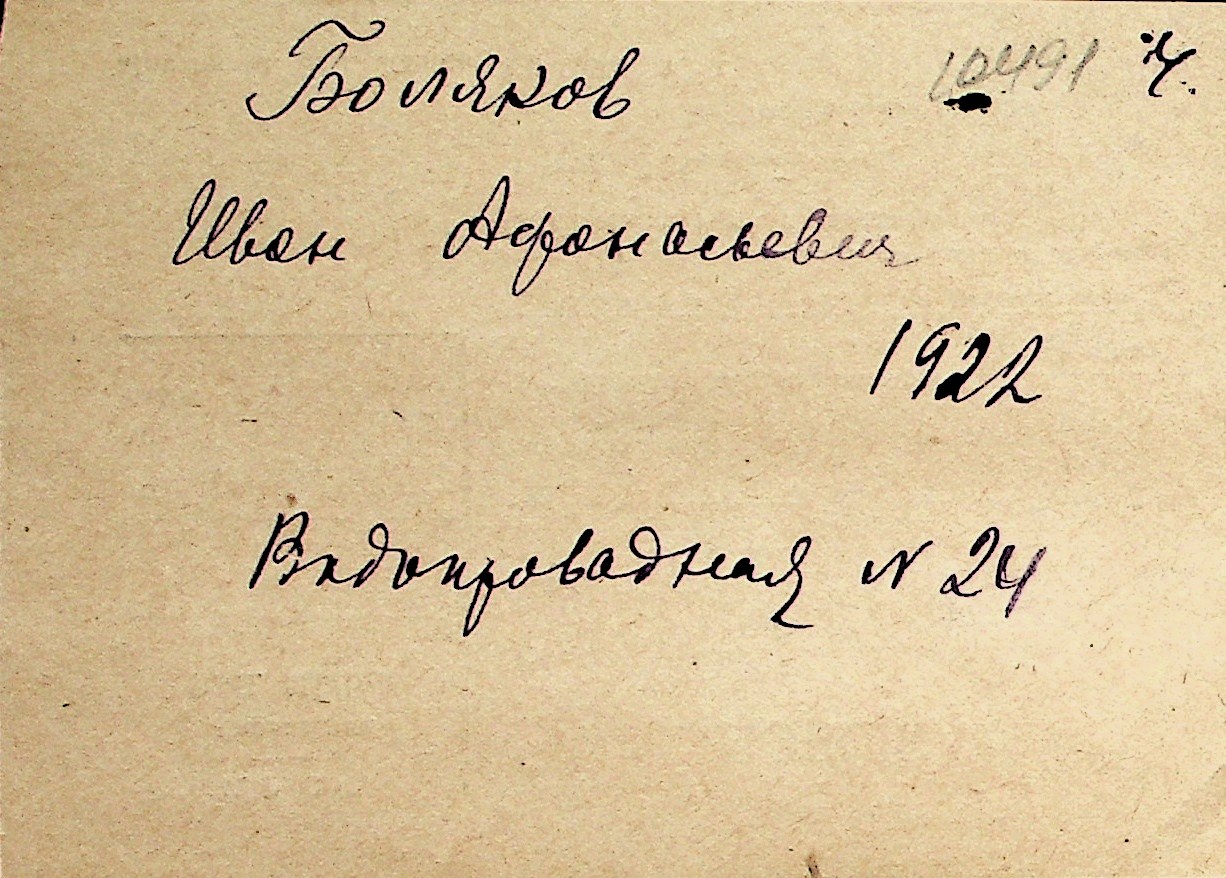 Боляков 10491 4
Иван Афанасьевич
1922
Водопровадная N 24